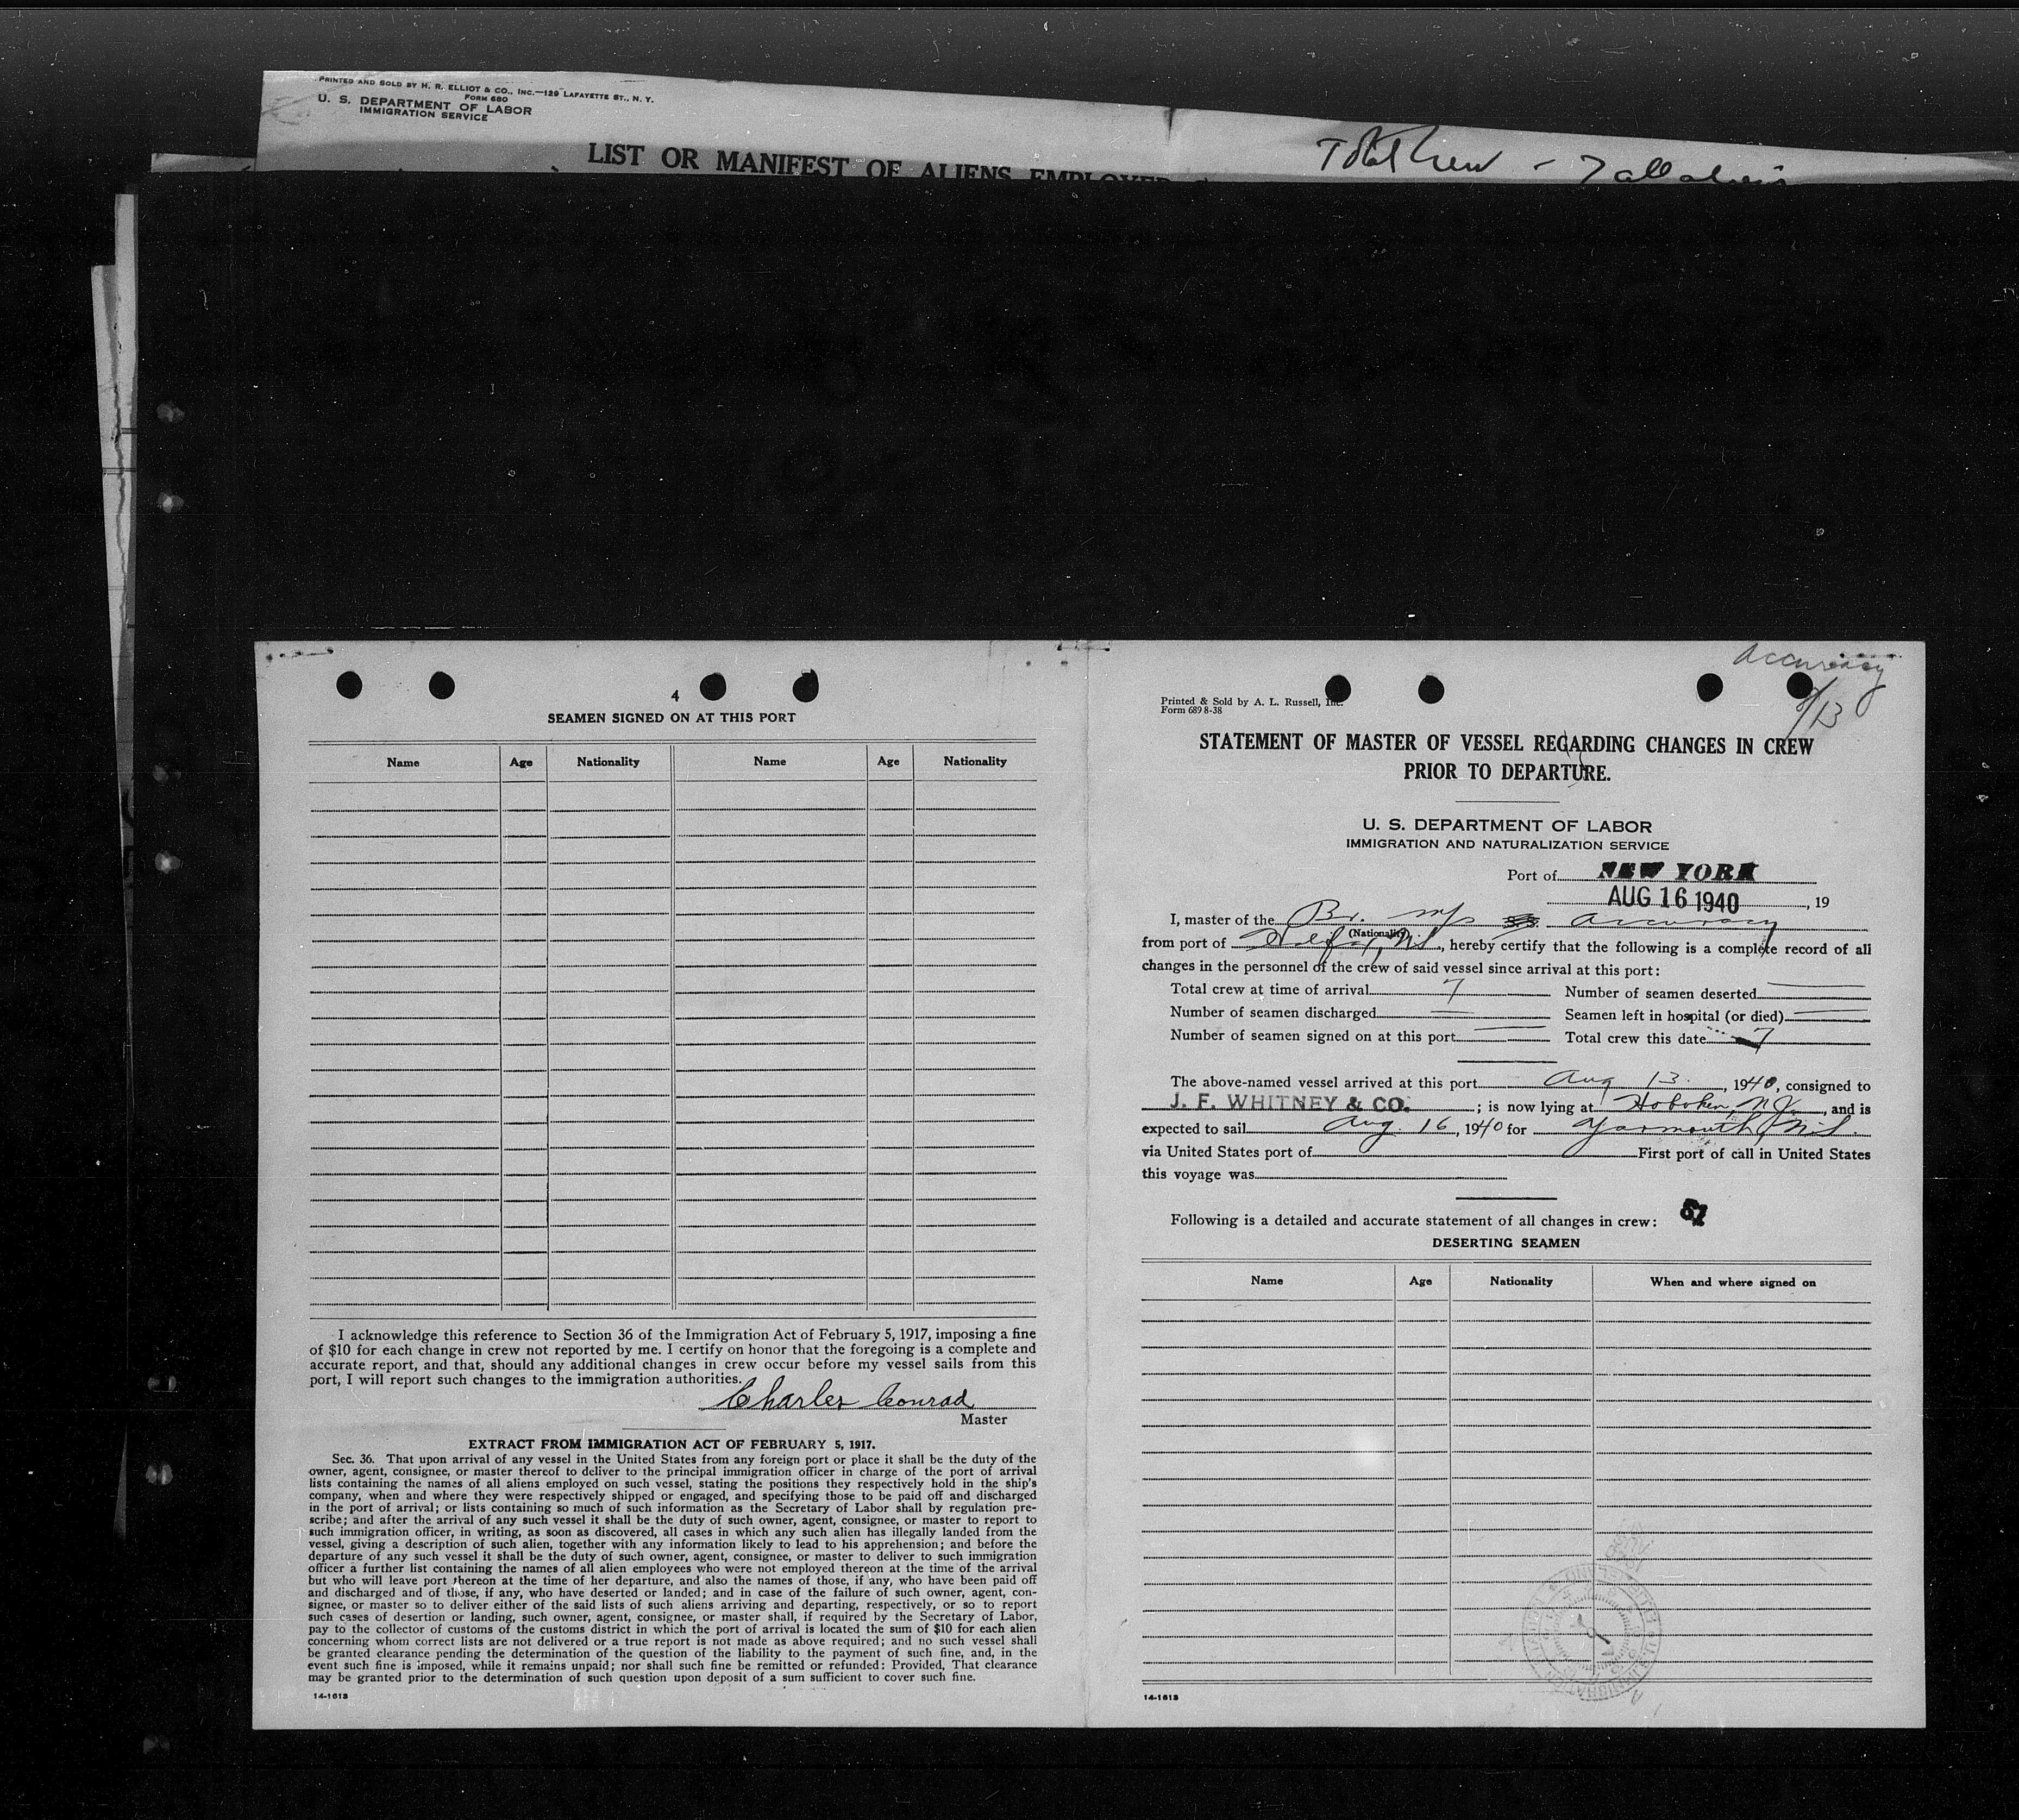 PRINTED AND SOLD BY H. R. ELLIOT & CO., INC.—129 LAFAYETTE ST., N. Y.
FORM 680
U. S. DEPARTMENT OF LABOR
IMMIGRATION SERVICE
LIST OR MANIFEST OF ALIENS EMPLOYED
Total Crew - 7 all aliens
4
SEAMEN SIGNED ON AT THIS PORT
Name Age Nationality Name Age Nationality
I acknowledge this reference to Section 36 of the Immigration Act of February 5, 1917, imposing a fine
of $10 for each change in crew not reported by me. I certify on honor that the foregoing is a complete and
accurate report, and that, should any additional changes in crew occur before my vessel sails from this
port, I will report such changes to the immigration authorities.
Charles Conrad
Master
EXTRACT FROM IMMIGRATION ACT OF FEBRUARY 5, 1917.
Sec. 36. That upon arrival of any vessel in the United States from any foreign port or place it shall be the duty of the
owner, agent, consignee, or master thereof to deliver to the principal immigration officer in charge of the port of arrival
lists containing the names of all aliens employed on such vessel, stating the positions they respectively hold in the ship's
company, when and where they were respectively shipped or engaged, and specifying those to be paid off and discharged
in the port of arrival; or lists containing so much of such information as the Secretary of Labor shall by regulation pre-
scribe; and after the arrival of any such vessel it shall be the duty of such owner, agent, consignee, or master to report to
such immigration officer, in writing, as soon as discovered, all cases in which any such alien has illegally landed from the
vessel, giving a description of such alien, together with any information likely to lead to his apprehension; and before the
departure of any such vessel it shall be the duty of such owner, agent, consignee, or master to deliver to such immigration
officer a further list containing the names of all alien employees who were not employed thereon at the time of the arrival
but who will leave port thereon at the time of her departure, and also the names of those, if any, who have been paid off
and discharged and of those, if any, who have deserted or landed; and in case of the failure of such owner, agent, con-
signee, or master so to deliver either of the said lists of such aliens arriving and departing, respectively, or so to report
such cases of desertion or landing, such owner, agent, consignee, or master shall, if required by the Secretary of Labor,
pay to the collector of customs of the customs district in which the port of arrival is located the sum of $10 for each alien
concerning whom correct lists are not delivered or a true report is not made as above required; and no such vessel shall
be granted clearance pending the determination of the question of the liability to the payment of such fine, and, in the
event such fine is imposed, while it remains unpaid; nor shall such fine be remitted or refunded: Provided, That clearance
may be granted prior to the determination of such question upon deposit of a sum sufficient to cover such fine.
14-1613
Accuracy
8/13
Printed & Sold by A. L. Russell, Inc.
Form 689 8-38
STATEMENT OF MASTER OF VESSEL REGARDING CHANGES IN CREW
PRIOR TO DEPARTURE.
U. S. DEPARTMENT OF LABOR
IMMIGRATION AND NATURALIZATION SERVICE
Port of NEW YORK
AUG 16 1940, 19
I, master of the Br. M/s Accuracy
(Nationality)
from port of Halifax, N.S., hereby certify that the following is a complete record of all
changes in the personnel of the crew of said vessel since arrival at this port:
Total crew at time of arrival 7 Number of seamen deserted
Number of seamen discharged Seamen left in hospital (or died)
Number of seamen signed on at this port Total crew this date 7
The above-named vessel arrived at this port Aug 13, 1940, consigned to
J. F. WHITNEY & CO. ; is now lying at Hoboken, N.J., and is
expected to sail Aug. 16, 1940 for Yarmouth, N.S.
via United States port of First port of call in United States
this voyage was
Following is a detailed and accurate statement of all changes in crew: 87
DESERTING SEAMEN
Name Age Nationality When and where signed on
14-1613